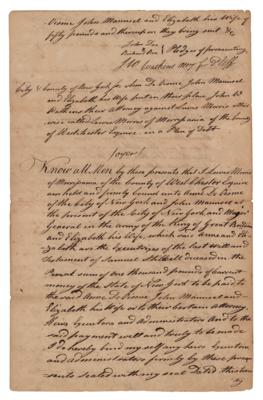 John Maunsel and Elizabeth his Wife of
fifty pounds and thereupon they bring suit &c
John Doe
Richard Roe } Pledges of prosecuting
City & County of New York ss Ann De John Maunsel
and Elizabeth his Wife put in their place John
their Attorney against Lewis Morris other
wise called Lewis Morris of Morrisania of the County
of Westchester Esquire in a Plea of Debt
Know all Men by these presents that I Lewis Morris
of Morrisania of the County of West Chester Esquire
am held and firmly bound unto Anne De
of the City of New York and John Maunsel at
the present of the City of New York and Major
General in the army of the King of Great Britain
and Elizabeth his Wife, which said Anne and Eliz
abeth are the Executrixes of the last will and
Testament of Samuel deceased in the
Penal sum of one thousand pounds of Current
money of the State of New York to be paid to
the said Anne De John Maunsel and
Elizabeth his Wife or to their certain Attorney
Heirs Executors and Administrators And to the
said payment well and truly to be made
I do hereby bind myself my heirs Executors
and Administrators firmly by these pre
sents sealed with my seal Dated the